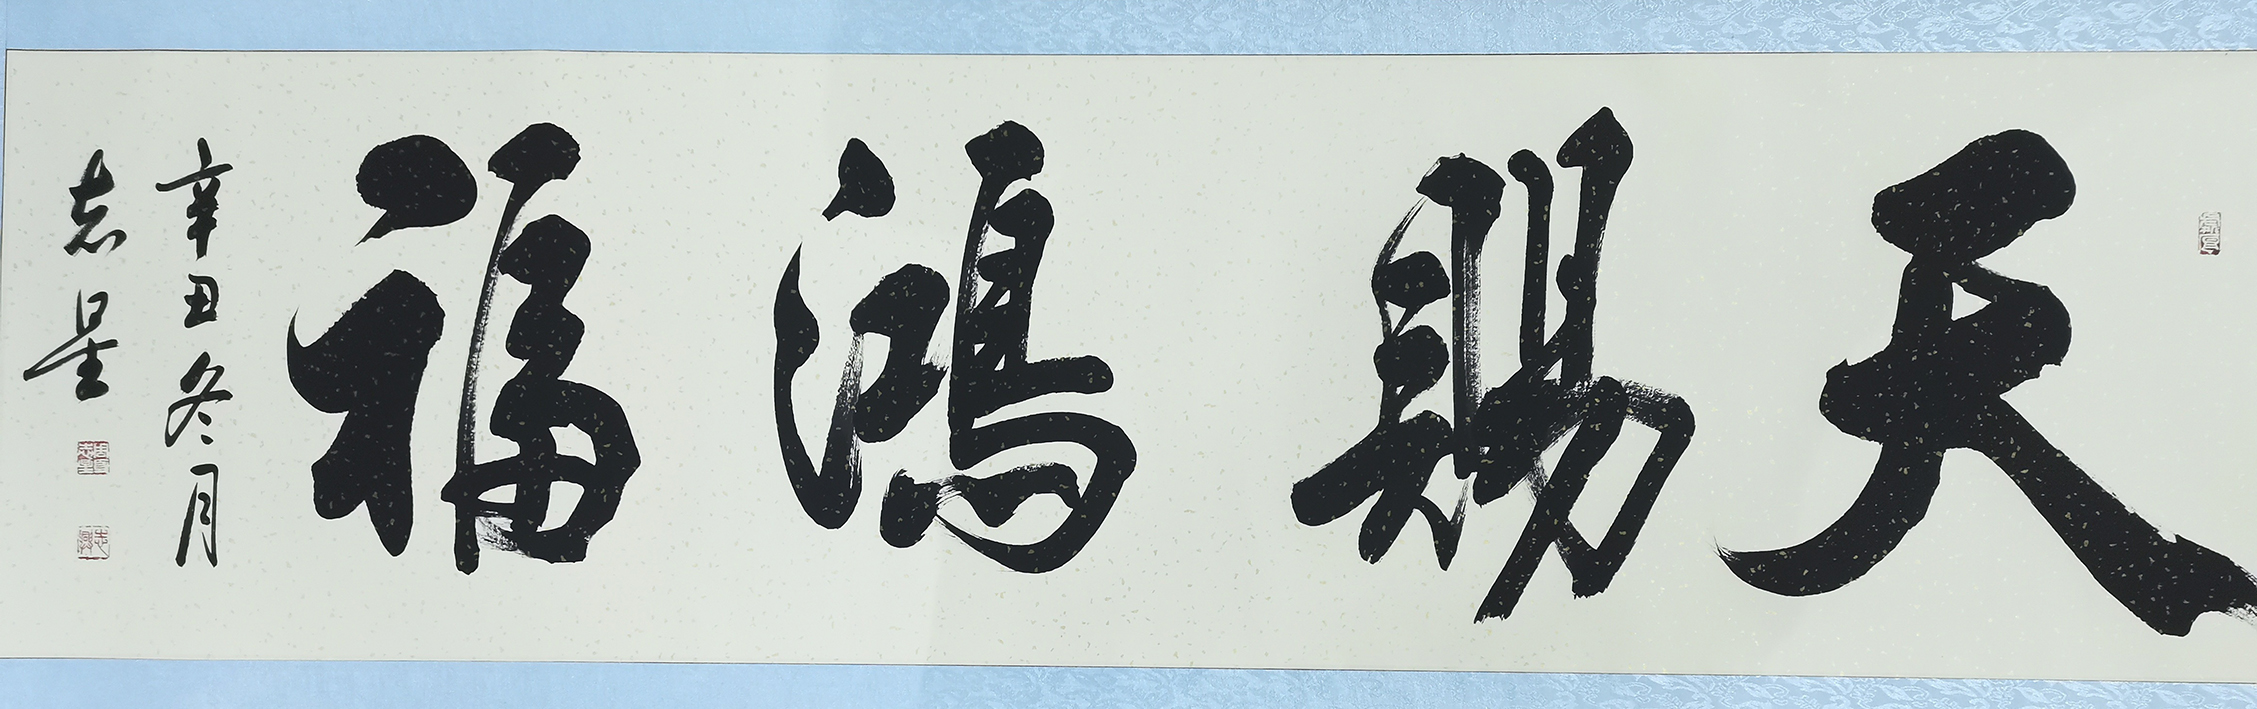 天赐鸿福
辛丑冬月
志星